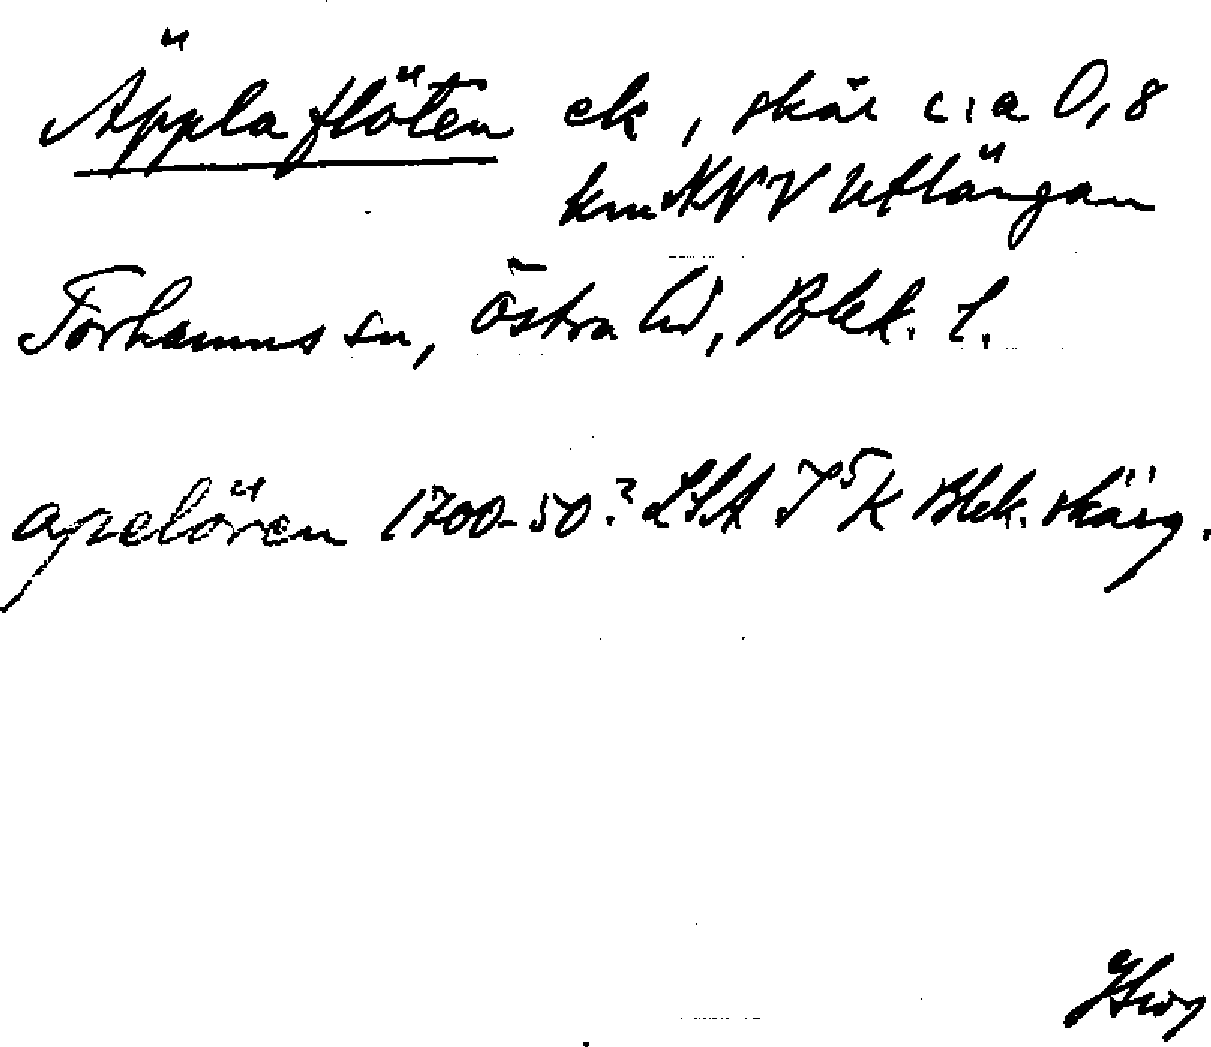 Äpplaflöten ek, skär c:a 0,8
km NNV Utlängan
Torhamns sn, Östra hd, Blek. l.
apelören 1700-50? LSA I 5 K Blek. skärg.